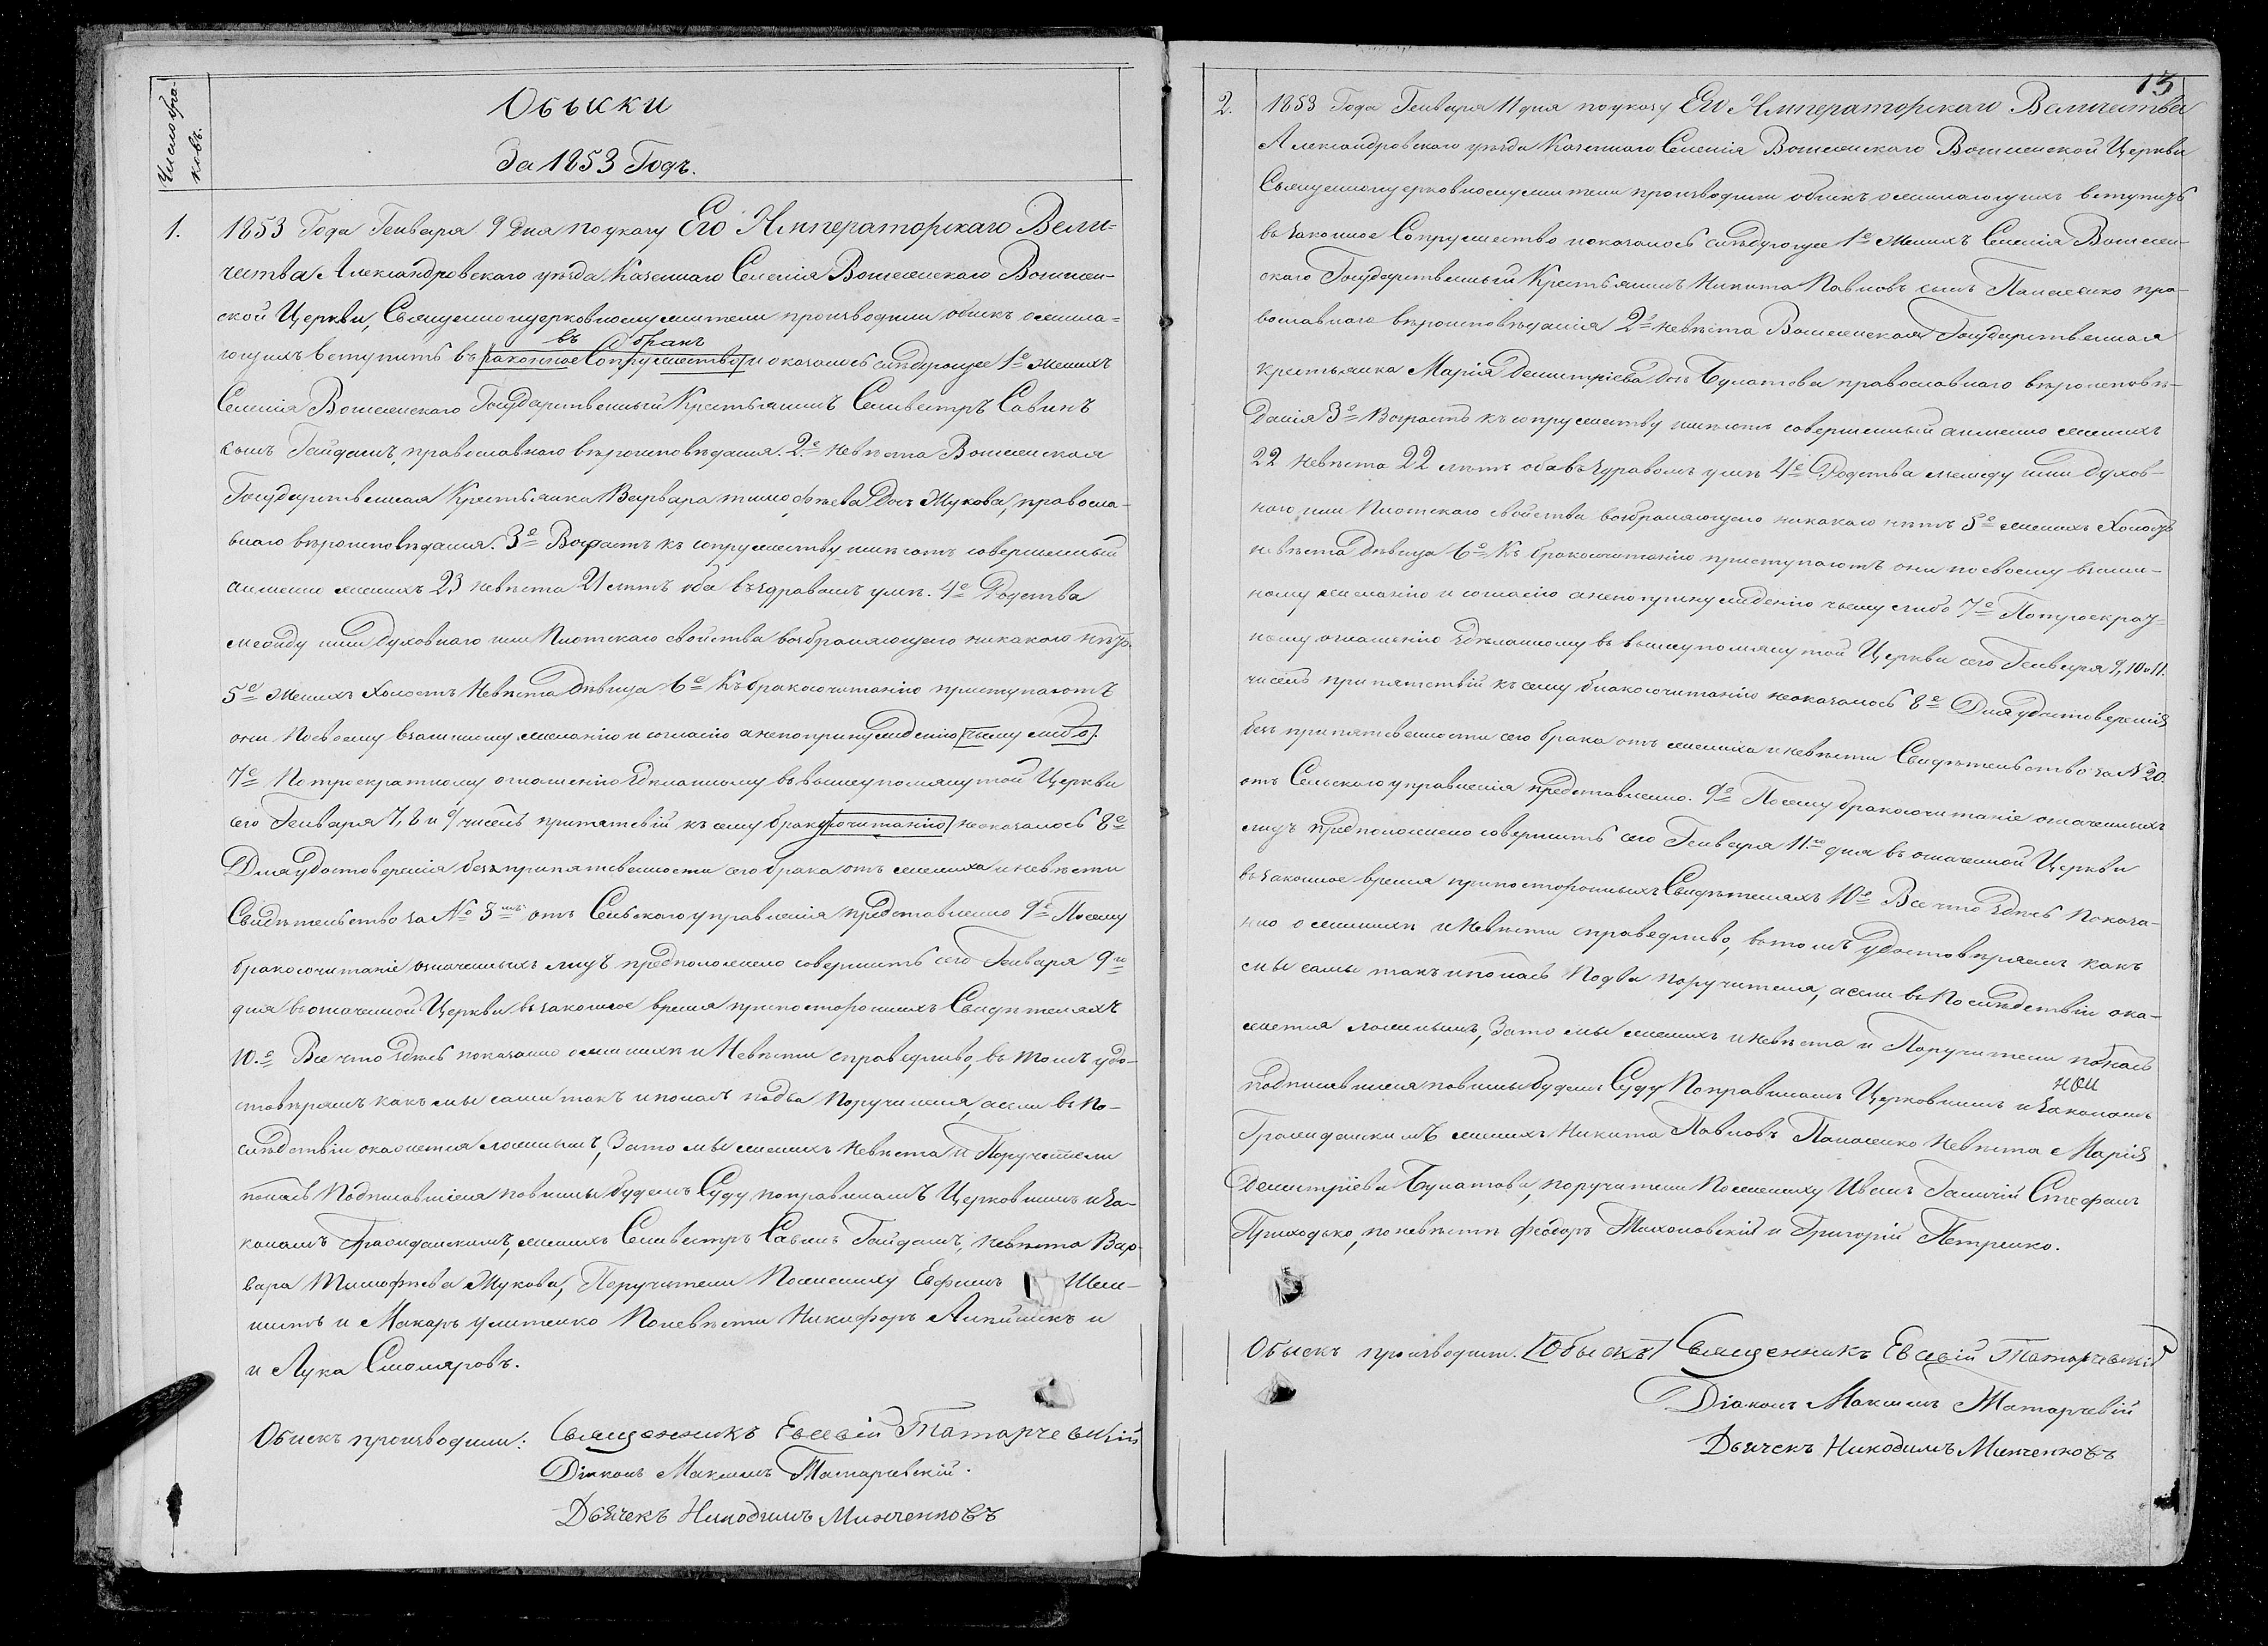 Число бра-
ковъ.
Обыски
За 1853 Годъ.
1.
1853 Года Генваря 9 дня по указу Его Императорскаго Вели-
чества Александровскаго уѣзда Казеннаго Селенія Вознесенскаго Вознесен-
ской Церкви, Священно и церковнослужители производили обыск о жела-
въ бракъ
ющихъ вступить въ [законное Сопружество] и оказалось слѣдующее 1е Женихъ
Селенія Вознесенскаго Государственный Крестьянинъ Селивестръ Савинъ
сынъ Гайдашъ, православнаго вѣроисповѣдания. 2.е невѣста Вознесенская
Государственная Крестьянка Варвара тимофѣева Дочь Жукова, правосла-
внаго вѣроисповѣдания. 3е Возрастъ къ сопружеству имѣютъ совершенный
а именно женихъ 23 невѣста 21 лѣтъ оба въ здравомъ умѣ. 4е Родства
между ими духовнаго или Плотскаго свойства возбраняющего никакого нѣтъ.
5е Женихъ Холостъ Невѣста Дѣвица 6е Къ бракосочитанію приступаютъ
они По своему взаимному желанію и согласію а не по принуждению [чьему либо].
7е По троекратному оглашенію Здѣланному въ вышеупомянутой Церкви
сего Генваря 7, 8 и 9 числъ припятствій къ сему браку[сочитанию] не оказалось 8е
Для удостоверенія безприпятсвенности сего брака отъ жениха и невѣсти
Свидѣтельство за № 5мъ отъ Сельскаго управленія представленно 9е По сему
бракосочитаніе означенныхъ лицъ предположено совершить сего Генваря 9го
дня в означенной Церкви въ законное время при посторонних Свидѣтеляхъ
10.е Все что здѣсь показанно о женихѣ и Невѣсти справедливо, въ томъ удо-
стовѣряемъ какъ мы сами такъ и по насъ по два Поручителя, а если въ По-
слѣдствіи окажется ложнымъ, За то мы женихъ невѣста и Поручители
по насъ Подписавшіеся повинны будемъ Суду по правиламъ Церковнимъ и За-
конамъ Гражданскимъ, женихъ Селивестръ Савинъ Гайдашъ, невѣста Вар-
вара Тимофѣева Жукова, Поручители По жениху Евфимъ
и Макаръ По невѣсти Никифоръ и
и Лука Столяровъ.
Обискъ производили: Священникъ Евсевій Татарчевскій
Діаконъ Максимъ Татарчевскій.
Дьячекъ Никодимъ Минченковъ
13
2.
1853 Года Генваря 11 дня по указу Его Императорскаго Величества
Александровскаго уѣзда Казеннаго Селенія Вознесенскаго Вознесенской Церкви
Священно и церковнослужители производили обыскъ о желающихъ вступить
въ законное Сопружество показалось слѣдующее 1е Женихъ Селенія Вознесен-
скаго Государственный Крестьянинъ Никита Павловъ сынъ Панасенко пра-
вославнаго вѣроисповѣдания 2е невѣста Вознесенская Государственная
крестьянка Марія Димитріева Дочь Булатова православнаго вѣроисповѣ-
данія 3е Возрастъ къ сопружеству имѣютъ совершенный а именно женихъ
22 невѣста 22 лѣтъ оба въ здравомъ умѣ 4е Родства между ими духов-
наго или Плотскаго свойства возбраняющего никакаго нѣтъ 5е женихъ Холостъ
невѣста дѣвица 6е Къ бракосочитанію приступаютъ они по своему взаим-
ному желанію и согласію а не по принуждению чьему либо 7е По троекрат-
ному оглашенію Здѣланному въ вышеупомянутой Церкви сего Генваря 9, 10 и 11.
числъ припятствій къ сему бракосочитанію не оказалось 8е Для удостовереній
безъ припятсвенности сего брака отъ жениха и невѣсти Свидѣтельство за № 20.
отъ Сельского управленія представленно. 9е По сему бракосочитаніе означенныхъ
лицъ предположено совершить сего Генваря 11.го дня въ означенной Церкви
въ законное время при посторонныхъ Свидѣтеляхъ 10е Все что здѣсь показа-
нно о женихѣ и невѣсти справедливо, въ томъ удостовѣряемъ какъ
мы самы такъ и по насъ По два поручителя, а если въ Послѣдствіи ока-
жется ложнымъ, За то мы женихъ и невѣста и Поручители по насъ
подписавшиеся повинны будемъ Суду По правиламъ Церковнимъ и Законамъ
Гражданскимъ женихъ Никита Павловъ Панасенко невѣста Марія
Димитріева Булатова, поручители По жениху Иванъ Стефанъ
Приходько, по невѣстѣ Феодоръ и Григорій Петренко.
Обыскъ производили. [Обыскъ] Священникъ Евсевій Татарчевскій
Діаконъ Максимъ Татарчевій
Дьячекъ Никодимъ Минченковъ